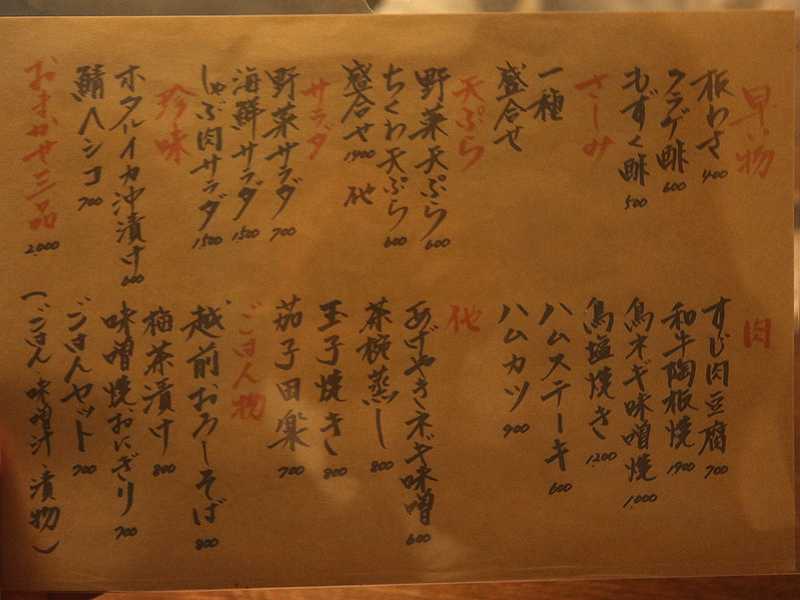 早い物
板わさ 400
クラゲ酢 600
もずく酢 500
さしみ
一種
盛合せ
天ぷら
野菜天ぷら 600
ちくわ天ぷら 600
盛合せ 1900 他
サラダ
野菜サラダ 700
海鮮サラダ 1500
しゃぶ肉サラダ 1500
珍味
ホタルイカ沖漬け 600
鯖ヘシコ 700
おまかせ三品 2,000
肉
すじ肉豆腐 700
和牛陶板焼 1900
鳥ネギ味噌焼 1,000
鳥塩焼き 1,200
ハムステーキ 600
ハムカツ 900
他
あげやきネギ味噌 600
茶椀蒸し 800
玉子焼き 800
茄子田楽 700
ごはん物
越前おろしそば 800
梅茶漬け 800
味噌焼おにぎり 700
ごはんセット 700
(ごはん・味噌汁・漬物)